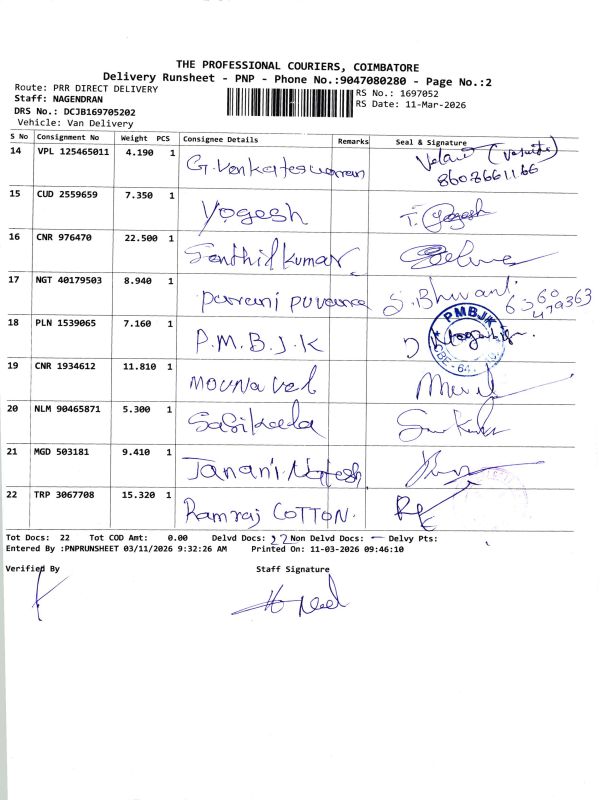 THE PROFESSIONAL COURIERS, COIMBATORE
Delivery Runsheet - PNP - Phone No.:9047080280 - Page No.:2
Route: PRR DIRECT DELIVERY
Staff: NAGENDRAN
DRS No.: DCJB169705202
Vehicle: Van Delivery
RS No.: 1697052
RS Date: 11-Mar-2026
S No Consignment No Weight PCS Consignee Details Remarks Seal & Signature
14 VPL 125465011 4.190 1 G. Venkateswaran
8603661166
15 CUD 2559659 7.350 1 Yogesh T. Yogesh
16 CNR 976470 22.500 1 Senthil Kumar
17 NGT 40179503 8.940 1 S. Bhuvani
6360
479363
18 PLN 1539065 7.160 1 P.M.B.J.K PMBJK
19 CNR 1934612 11.810 1 Mounavel
20 NLM 90465871 5.300 1
21 MGD 503181 9.410 1 Janani Natesh
22 TRP 3067708 15.320 1 Ramraj COTTON.
Tot Docs: 22 Tot COD Amt: 0.00 Delvd Docs: 22 Non Delvd Docs: - Delvy Pts:
Entered By :PNPRUNSHEET 03/11/2026 9:32:26 AM Printed On: 11-03-2026 09:46:10
Verified By Staff Signature